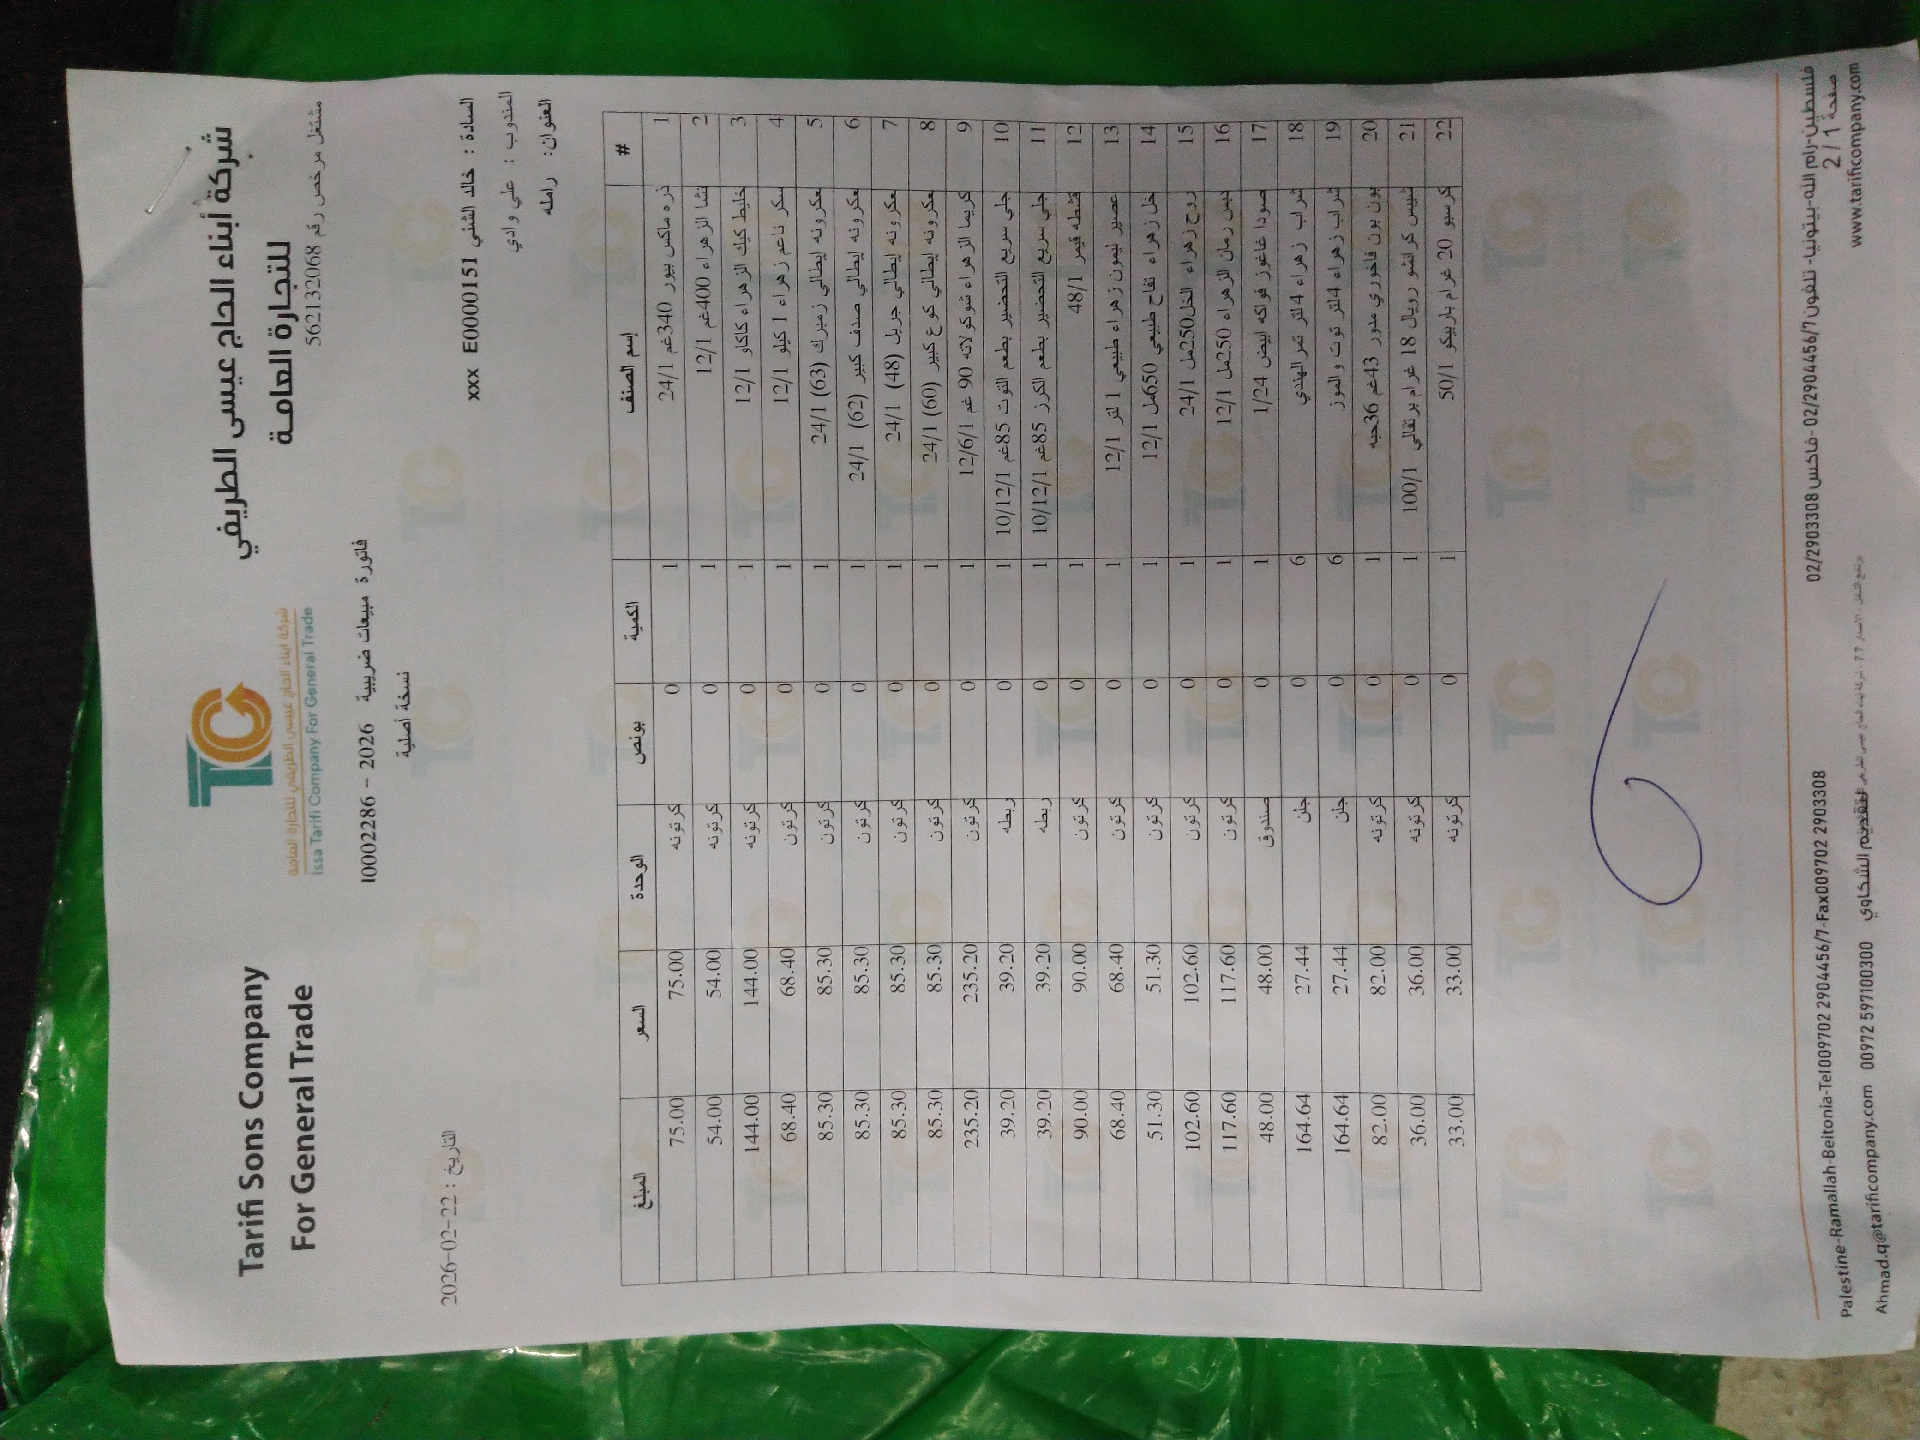 Tarifi Sons Company
For General Trade
شركة ابناء الحاج عيسى الطريفي للتجارة العامة
Issa Tarifi Company For General Trade
شركة أبناء الحاج عيسى الطريفي
للتجارة العامة
مشتغل مرخص رقم 562132068
فاتورة مبيعات ضريبية 2026 - 10002286
نسخة أصلية
التاريخ : 22-02-2026
السادة : خالد الشني E0000151 xxx
المندوب : علي وادي
العنوان: رامله
# إسم الصنف الكمية بونص الوحدة السعر المبلغ
1 ذره ماكس بيور 340غم 24/1 1 0 كرتونه 75.00 75.00
2 نشا الزهراء 400غم 12/1 1 0 كرتونه 54.00 54.00
3 خليط كيك الزهراء كاكاو 12/1 1 0 كرتونه 144.00 144.00
4 سكر ناعم زهراء 1 كيلو 12/1 1 0 كرتون 68.40 68.40
5 معكرونه ايطالي زمبرك (63) 24/1 1 0 كرتون 85.30 85.30
6 معكرونه ايطالي صدف كبير (62) 24/1 1 0 كرتون 85.30 85.30
7 معكرونه ايطالي جريل (48) 24/1 1 0 كرتون 85.30 85.30
8 معكرونه ايطالي كوع كبير (60) 24/1 1 0 كرتون 85.30 85.30
9 كريما الزهراء شوكولاته 90 غم 12/6/1 1 0 كرتون 235.20 235.20
10 جلي سريع التحضير بطعم التوت 85غم 10/12/1 1 0 ربطه 39.20 39.20
11 جلي سريع التحضير بطعم الكرز 85غم 10/12/1 1 0 ربطه 39.20 39.20
12 قشطه قيمر 48/1 1 0 كرتون 90.00 90.00
13 عصير ليمون زهراء طبيعي 1 لتر 12/1 1 0 كرتون 68.40 68.40
14 خل زهراء تفاح طبيعي 650مل 12/1 1 0 كرتون 51.30 51.30
15 روح زهراء الخل250مل 24/1 1 0 كرتون 102.60 102.60
16 دبس رمان الزهراء 250مل 12/1 1 0 كرتون 117.60 117.60
17 صودا غاغوز فواكه ابيض 1/24 1 0 صندوق 48.00 48.00
18 شراب زهراء 4 لتر تمر الهندي 6 0 جلن 27.44 164.64
19 شراب زهراء 4 لتر توت والموز 6 0 جلن 27.44 164.64
20 بون بون فاخوري مدور 43غم 36حبه 1 0 كرتونه 82.00 82.00
21 شيبس كرانشو رويال 18 غرام برتقالي 100/1 1 0 كرتونه 36.00 36.00
22 كرسبو 20 غرام باربيكو 50/1 1 0 كرتونه 33.00 33.00
فلسطين-رام الله-بيتونيا- تلفون 02/2904456/7 - فاكس 02/2903308
صفحة 1 / 2
www.tarificompany.com
Palestine-Ramallah-Beitonia-Tel009702 2904456/7-Fax009702 2903308
Ahmad.q@tarificompany.com 00972 597100300 لتقديم الشكاوي